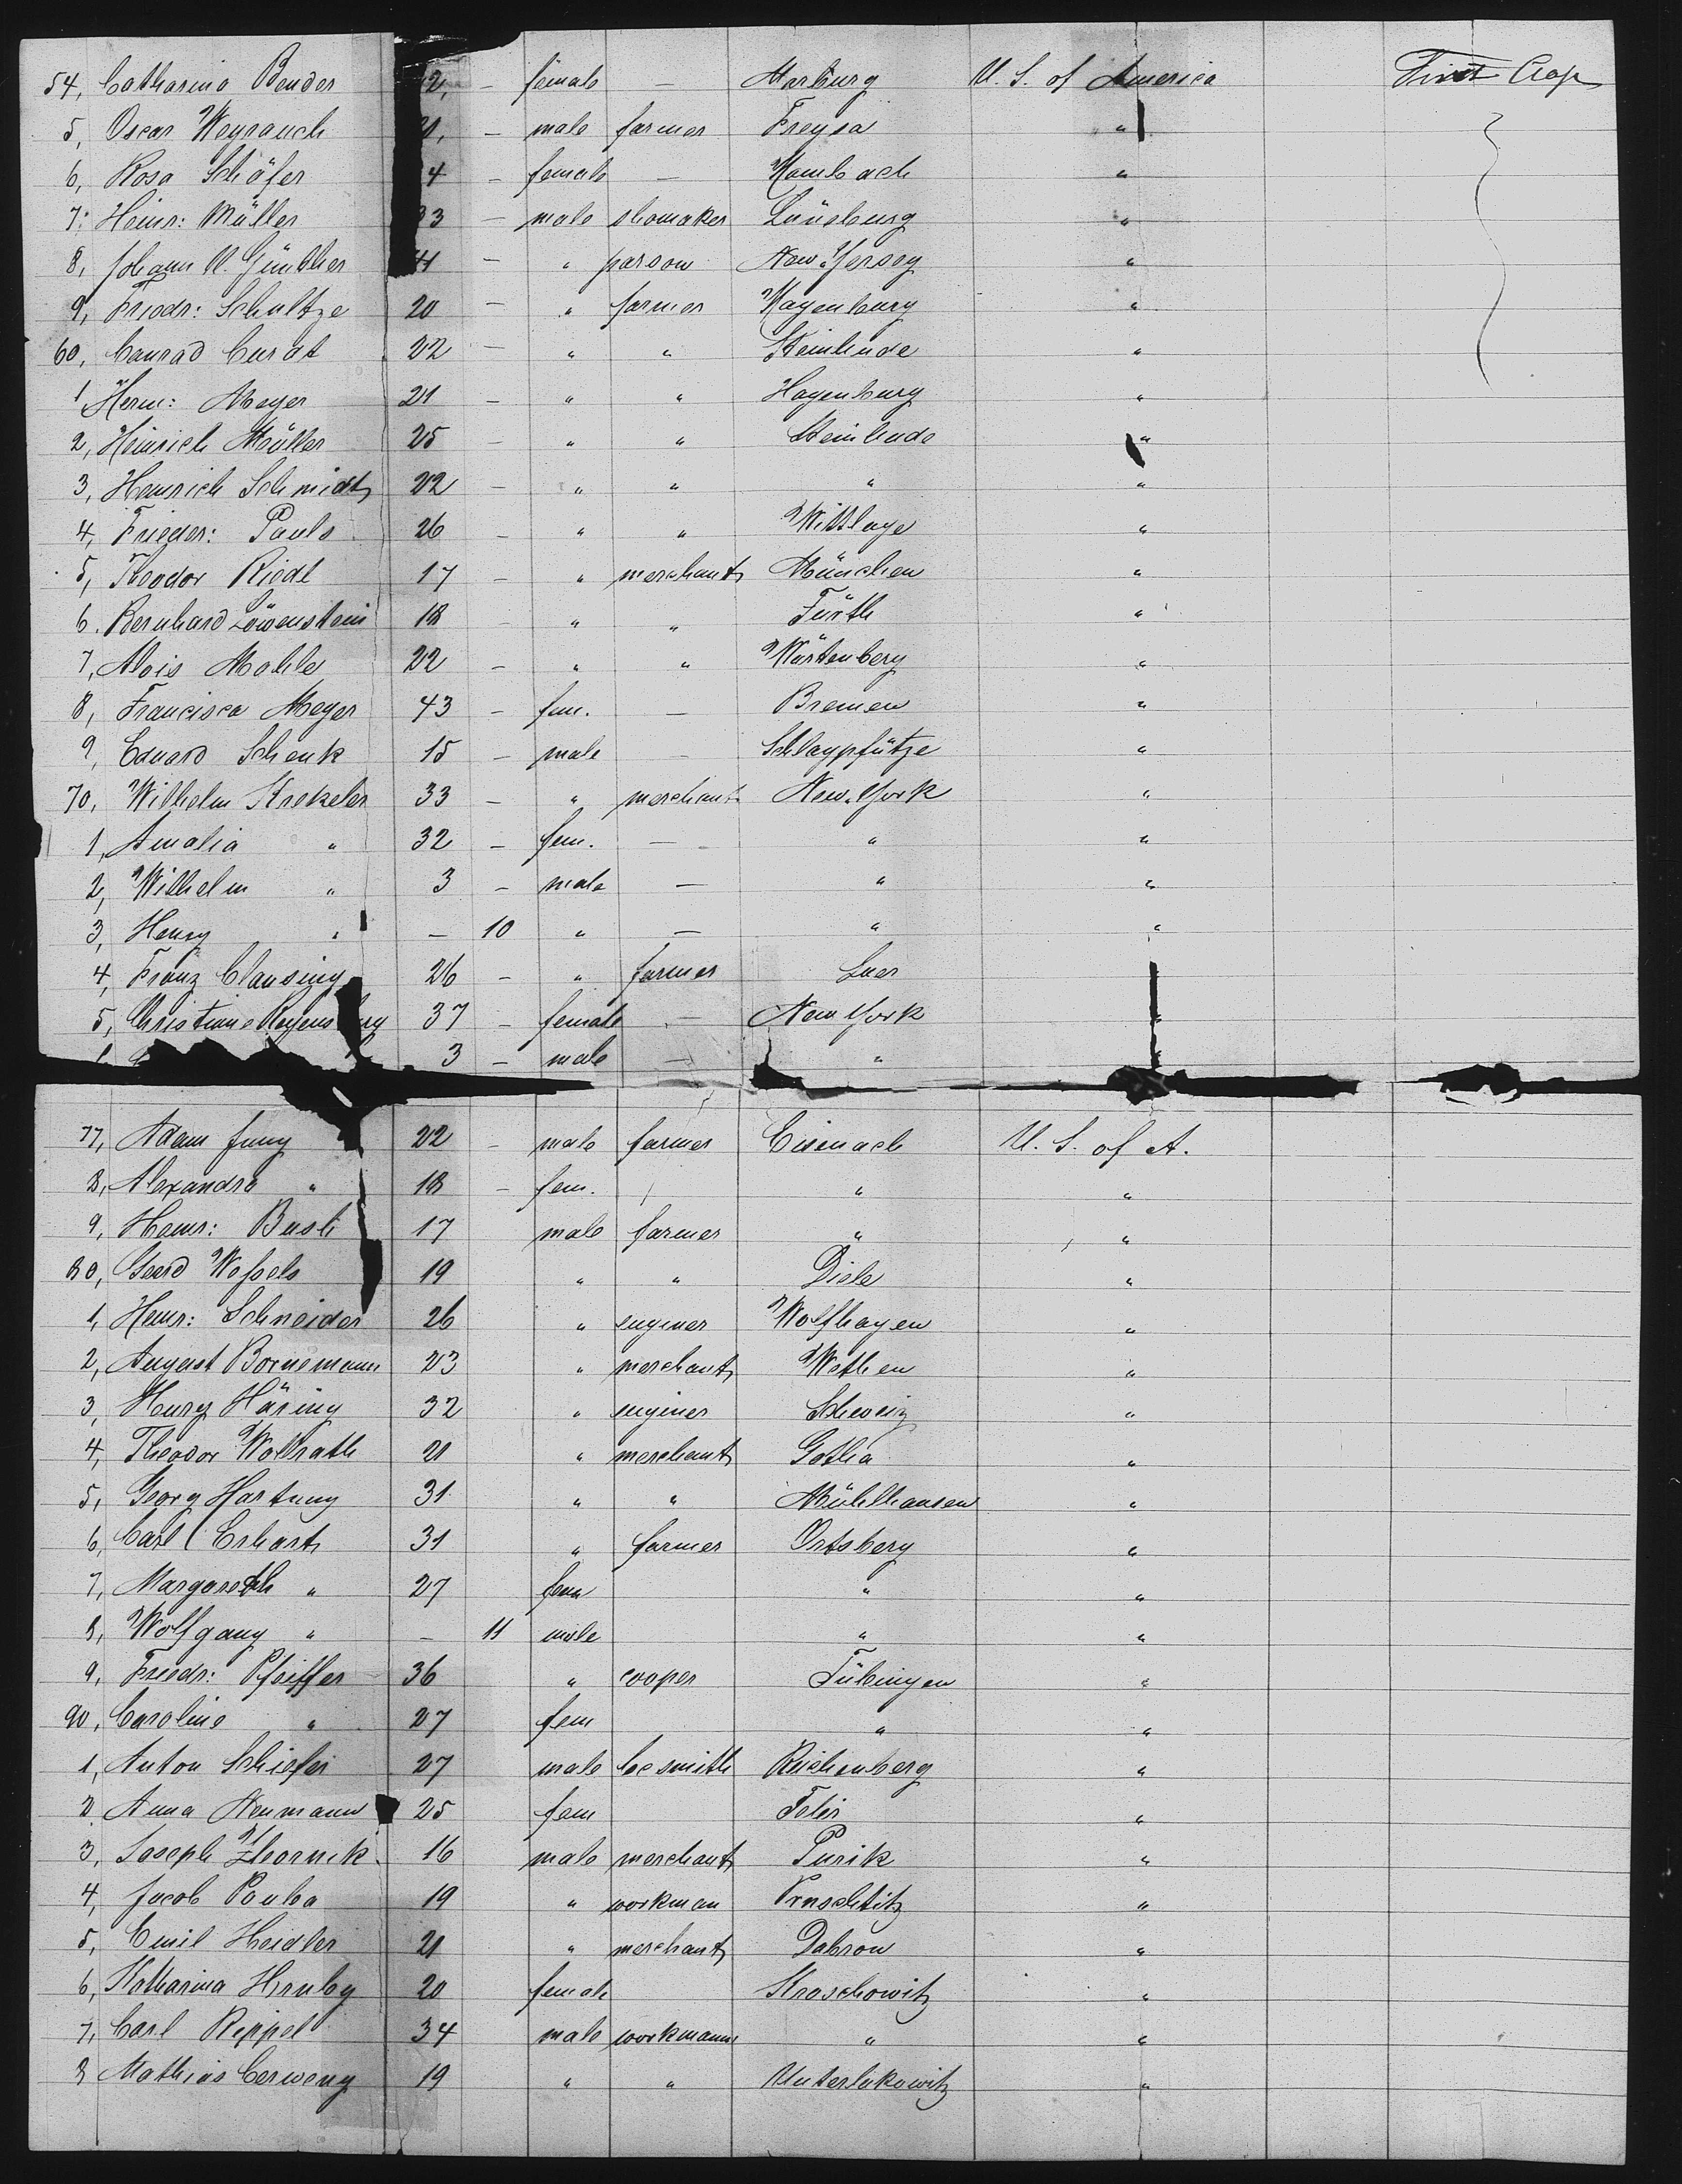 54, Catharina Bender 2, – female – Marburg U. S. of America First Clas
5, Oscar Weyrauch 21, – male farmer Freysa "
6, Rosa Schäfer 4 – female – Wambach "
7: Heinr: Müller 33 – male shomaker Lüneburg "
8, Johann U. Günther 41 – " parson New Yersey "
9, Friedr: Schultze 20 – " farmer Wagenburg "
60, Conrad Curat 22 – " " Steinhude "
1 Herm: Meyer 21 – " " Hagenburg "
2, Heinrich Müller 25 – " " Steinhude "
3, Heinrich Schmidt 22 – " " " "
4, Frieder: Pauls 26 – " " Wittlage "
5, Theodor Riedl 17 – " merchant München "
6. Bernhard Löwenstein 18 – " " Fürth "
7, Alois Mohle 22 – " " Würtenberg "
8, Francisca Meyer 43 – fem. – Bremen "
9, Eduard Schenk 15 – male – Schlappfütze "
70, Wilhelm Krekeler 33 – " merchant New York "
1, Amalia " 32 – fem. – " "
2, Wilhelm " 3 – male – " "
3, Henry " – 10 " – " "
4, Franz Clausing 26 – " farmer Luer "
5, Christine 37 – female – New York "
3 – male – " "
77, Adam Jung 22 – male farmer Eisenach U. S. of A.
8, Alexandra " 18 – fem. " "
9, Heinr: Bush 17 male farmer " "
80, Gerd Wessels 19 " " Diele "
1, Heinr: Schneider 26 " enginer Wolfhagen "
2, August Bornemann 23 " merchant Wethen "
3, Henry Häring 32 " enginer Schweiz "
4, Theodor Wollrath 21 " merchant Gotha "
5, Georg Hartung 31 " " Mühlhausen "
6, Carl Erhart 31 " farmer Ortsberg "
7, Margareth " 27 fem " "
8, Wolfgang " – 11 male " "
9, Friedr: Pfeiffer 36 " cooper Tübingen "
90, Caroline " 27 fem " "
1, Anton Schiefer 27 male locsmith Reichenberg "
2, Anna Neumann 25 fem "
3, Joseph Zbornik 16 male merchant Purik "
4, Jacob Pauba 19 " workman "
5, Emil Heidler 21 " merchant Dabrow "
6, Katharina Hruby 20 female Kroschowitz "
7, Carl Rippel 34 male workmann " "
8 Mathias Cerweny 19 " " Unterlukowitz "